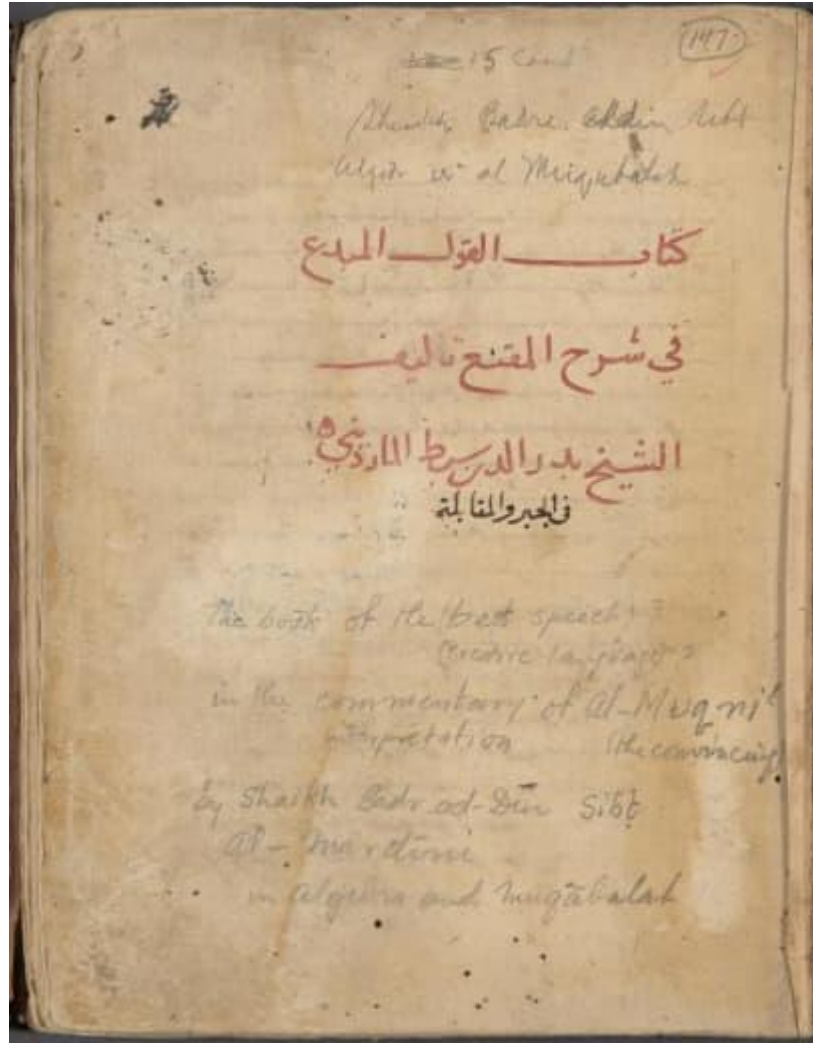 147
15 Cent
Sheikh Badre. eddin Sibt
al Muqabalah
كتاب القول المبدع
في شرح المقنع تاليف
الشيخ بدر الدين سبط المارديني
في الجبر والمقابلة
The book of the best speech ?
Creative language ?
in the commentary of al-Muqni'
interpretation (the convincing)
by Shaikh Badr ad-Dīn Sibṭ
al-Mardīnī
in Algebra and Muqābalah